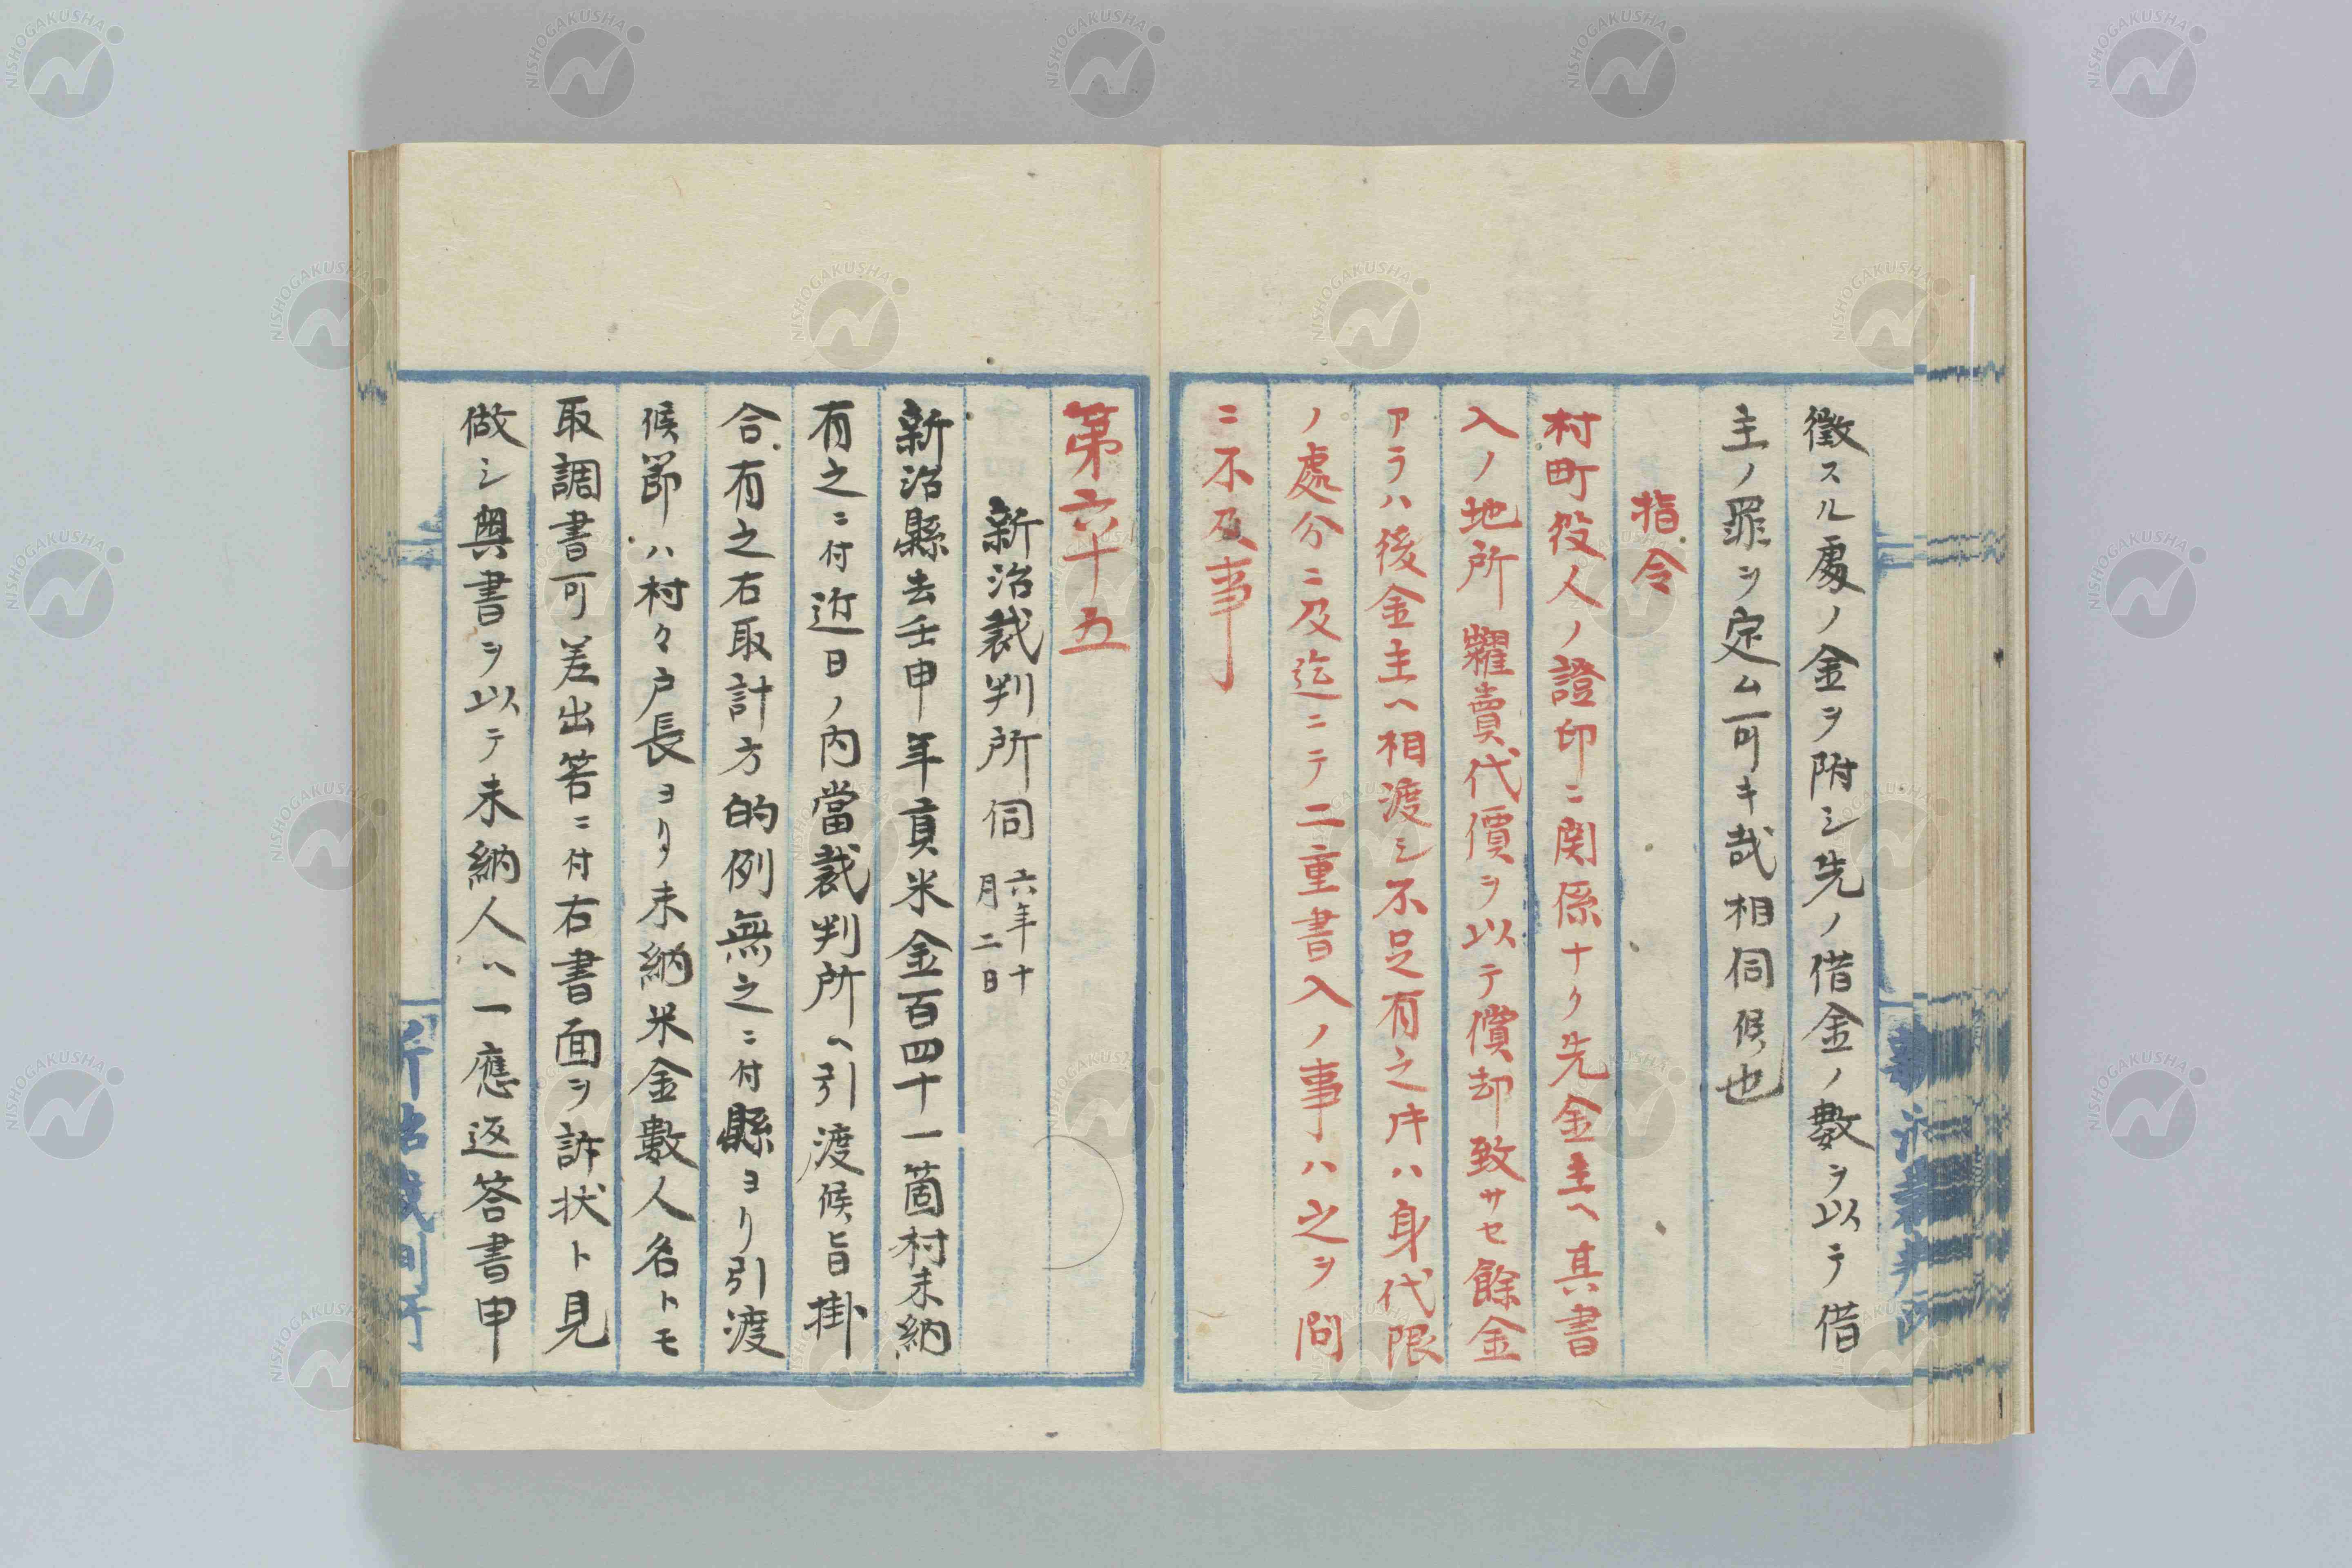 徴スル處ノ金ヲ附シ先ノ借金ノ數ヲ以テ借
主ノ罪ヲ定ム可キ哉相伺候也
指令
村町役人ノ證印ニ関係ナク先金主ヘ其書
入ノ地所糶賣代價ヲ以テ償却致サセ餘金
アラハ後金主ヘ相渡シ不足有之片ハ身代限
ノ處分ニ及迄ニテ二重書入ノ事ハ之ヲ問
ニ不及事
第六十五
新治裁判所伺 六年十
月二日
新治縣去壬申年貢米金百四十一箇村未納
有之ニ付近日ノ内當裁判所ヘ引渡候旨掛
合有之右取計方的例無之ニ付縣ヨリ引渡
候節ハ村々戸長ヨリ未納米金數人名トモ
取調書可差出筈ニ付右書面ヲ訴状ト見
做シ奥書ヲ以テ未納人ヘ一應返答書申
NISHOGAKUSHA